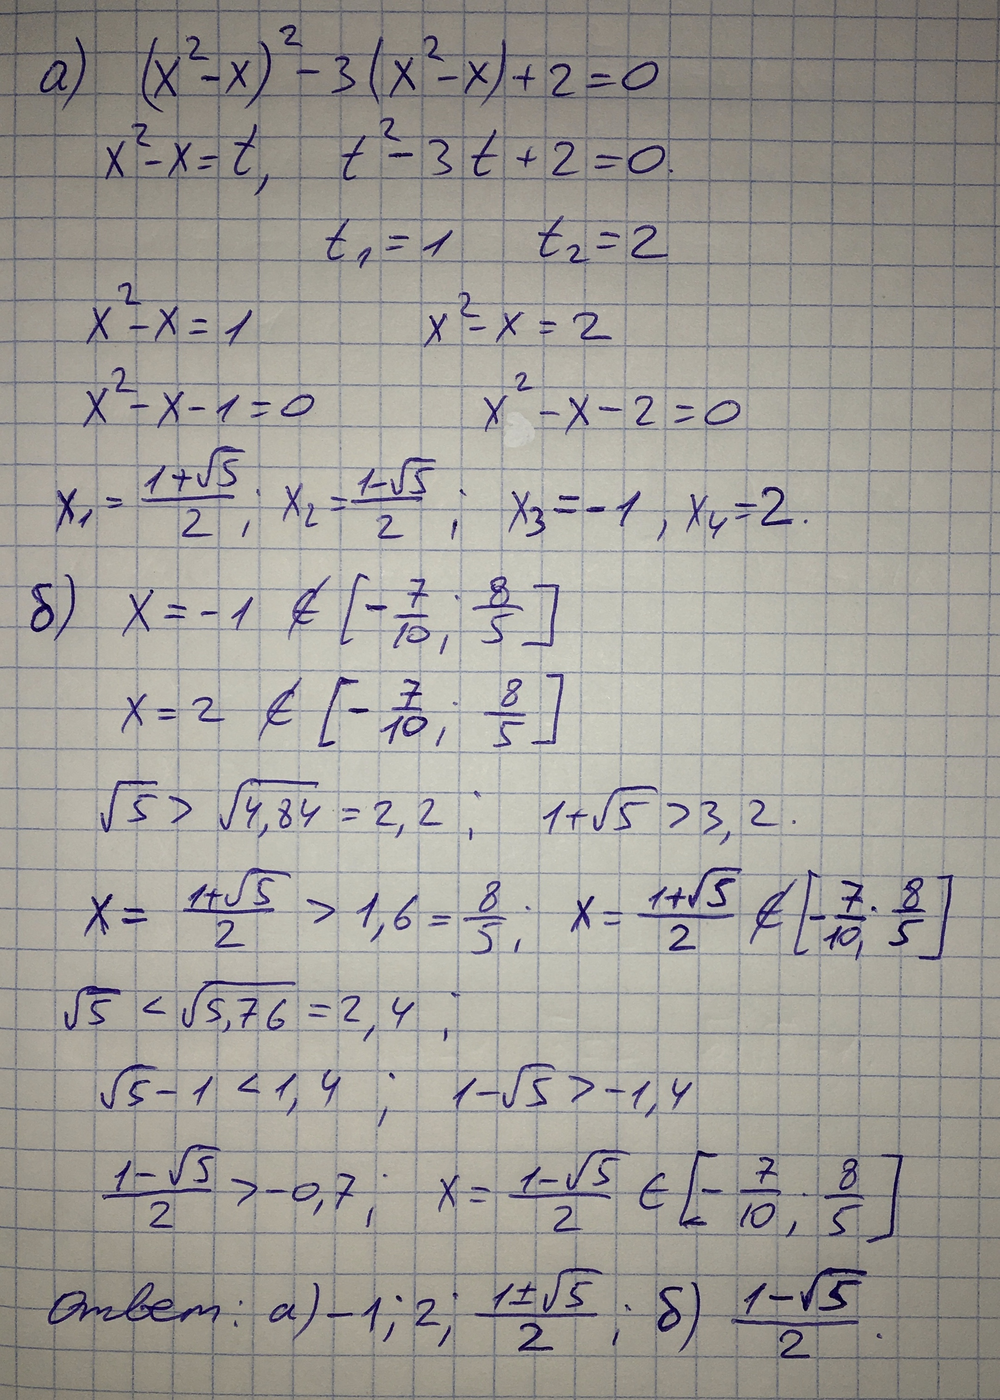 а) (x²-x)²-3(x²-x)+2=0
x²-x=t, t²-3t+2=0.
t₁=1 t₂=2
x²-x=1 x²-x=2
x²-x-1=0 x²-x-2=0
x₁=(1+√5)/2; x₂=(1-√5)/2; x₃=-1, x₄=2.
б) x=-1 ∉ [-7/10; 8/5]
x=2 ∉ [-7/10; 8/5]
√5 > √4,84 = 2,2; 1+√5 > 3,2.
x=(1+√5)/2 > 1,6 = 8/5; x=(1+√5)/2 ∉ [-7/10; 8/5]
√5 < √5,76 = 2,4;
√5-1 < 1,4; 1-√5 > -1,4
(1-√5)/2 > -0,7; x=(1-√5)/2 ∈ [-7/10; 8/5]
Ответ: а) -1; 2; (1±√5)/2; б) (1-√5)/2.